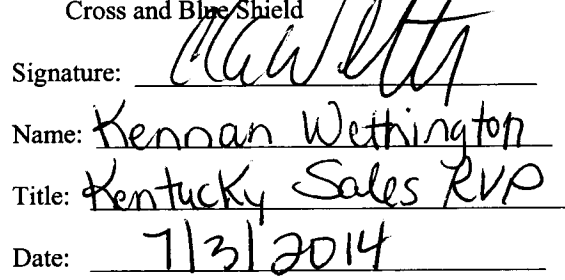 Cross and Blue Shield
Signature:
Name: Kennan Wethington
Title: Kentucky Sales RVP
Date: 7/3/2014